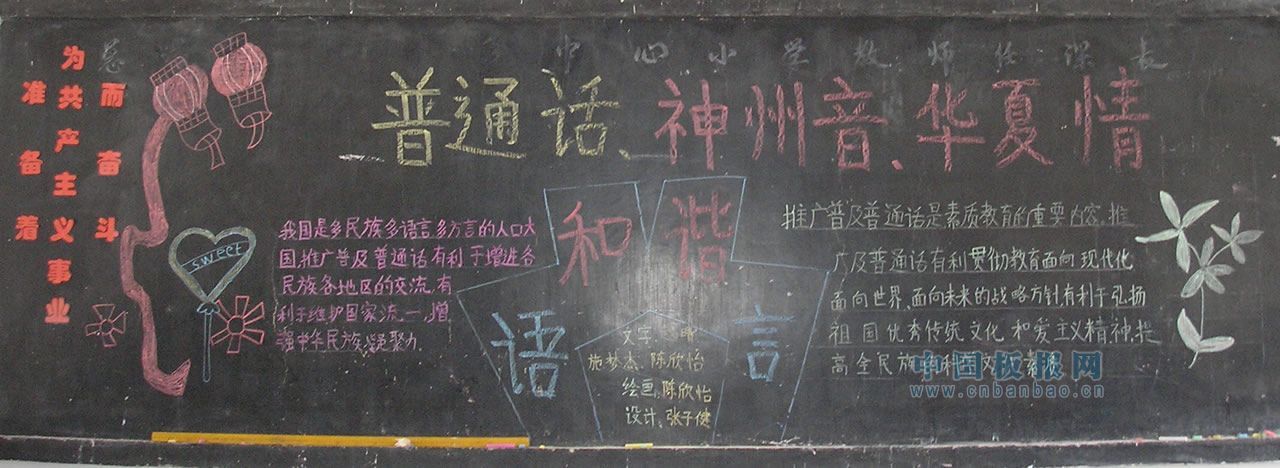 准备着
为共产主义事业
而奋斗
中心小学教师任课表
普通话、神州音、华夏情
sweet
我国是多民族多语言多方言的人口大
国,推广普及普通话有利于增进各
民族各地区的交流,有
利于维护国家流一,增
强中华民族凝聚力
和谐
语言
文字:
施梦杰、陈欣怡
绘画:陈欣怡
设计:张子健
推广普及普通话是素质教育的重要内容,推
广及普通话有利贯彻教育面向现代化
面向世界,面向未来的战略方针有利于弘扬
祖国优秀传统文化和爱主义精神,提
高全民族的科学文化素质
中国板报网
www.cnbanbao.cn